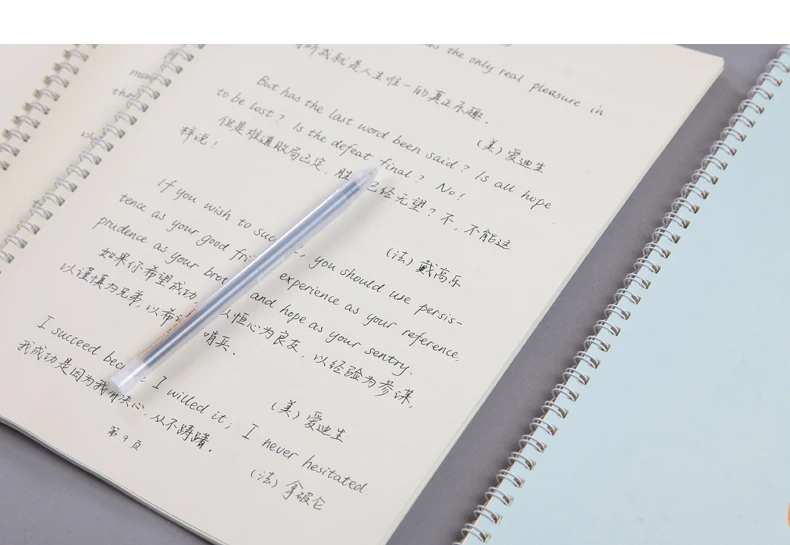 s the only real pleasure in
所成就是人生惟一的真正乐趣.
(美) 爱迪生
But has the last word been said? Is all hope
to be lost? Is the defeat final? No!
但是难道败局已定, 胜 已经无望? 不, 不能这
样说!
(法) 戴高乐
If you wish to suc , you should use persis-
tence as your good fri experience as your reference,
prudence as your brot and hope as your sentry.
如果你希望成功, 以恒心为良友, 以经验为参谋,
以谨慎为兄弟, 以希 哨兵.
(美) 爱迪生
I succeed bec I willed it; I never hesitated.
我成功是因为我有决心, 从不踌躇.
(法) 拿破仑
第9页